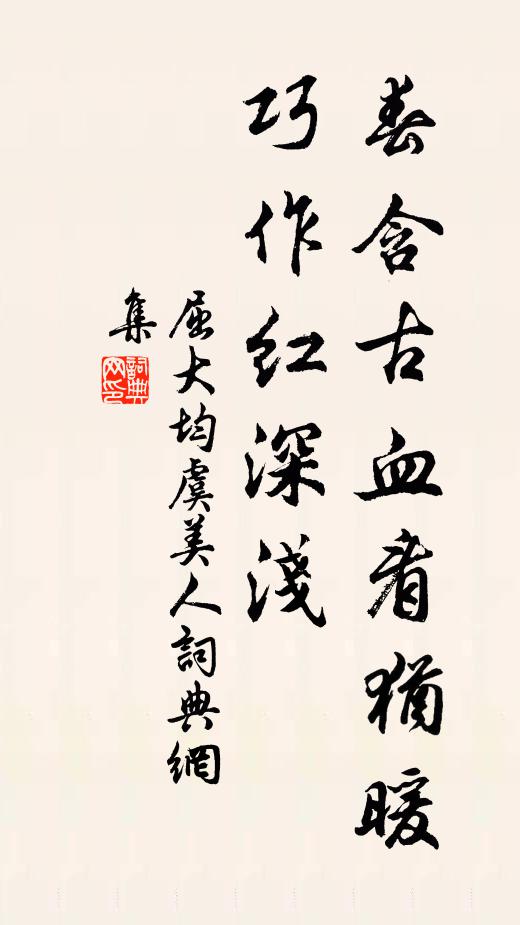 春含古血看猶暖
巧作紅深淺
屈大均虞美人詞典網
集
詞典網印